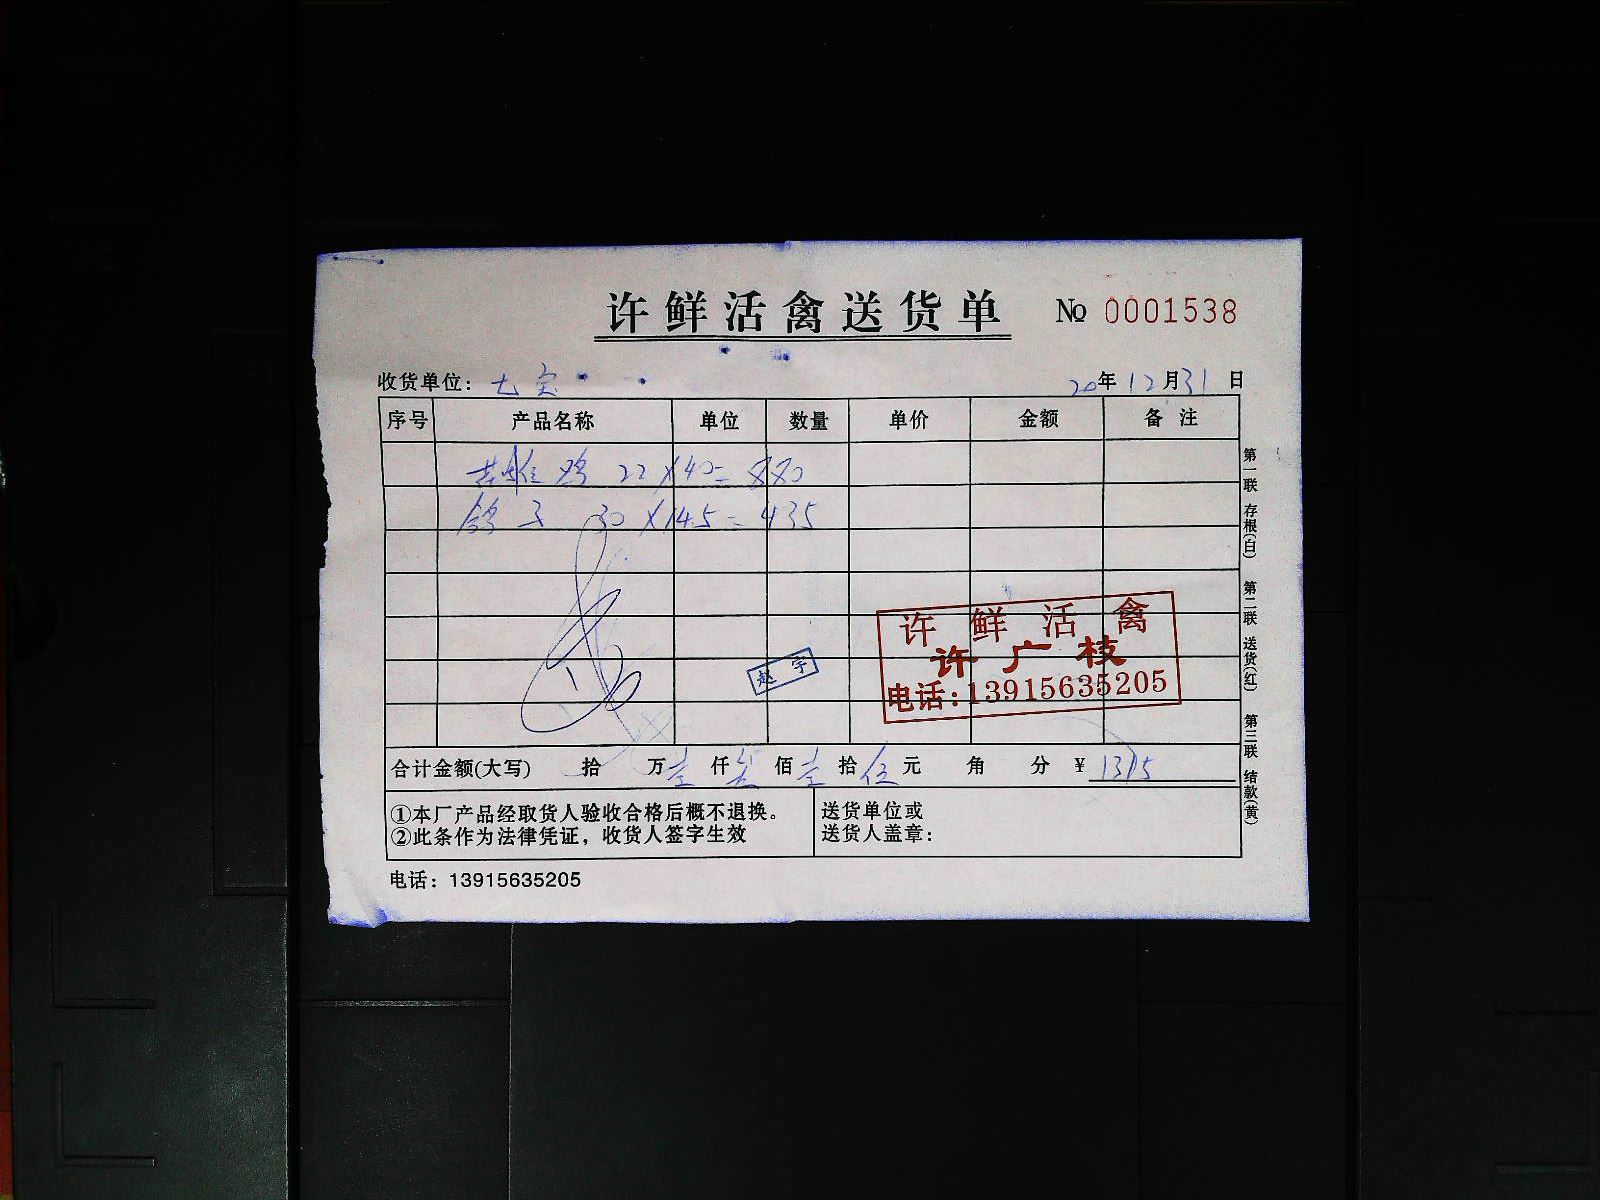 许鲜活禽送货单 № 0001538
收货单位: 七宝 20年12月31日
序号 产品名称 单位 数量 单价 金额 备注
鸡 22×40=880
鸽子 30×14.5=435
许鲜活禽
许广枝
电话:13915635205
赵宇
合计金额(大写) 拾 万壹仟叁佰壹拾伍元 角 分 ¥1315
①本厂产品经取货人验收合格后概不退换。
②此条作为法律凭证，收货人签字生效
送货单位或
送货人盖章：
电话：13915635205
第一联 存根(白) 第二联 送货(红) 第三联 结款(黄)